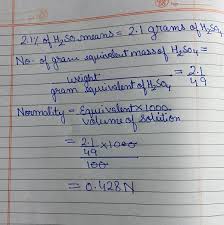 2.1% of H₂SO₄ means = 2.1 grams of H₂SO₄
No. of gram equivalent mass of H₂SO₄ =
weight / gram equivalent of H₂SO₄ = 2.1 / 49
Normality = Equivalent × 1000 / volume of solution
= 2.1 / 49 × 1000 / 100
= 0.428 N